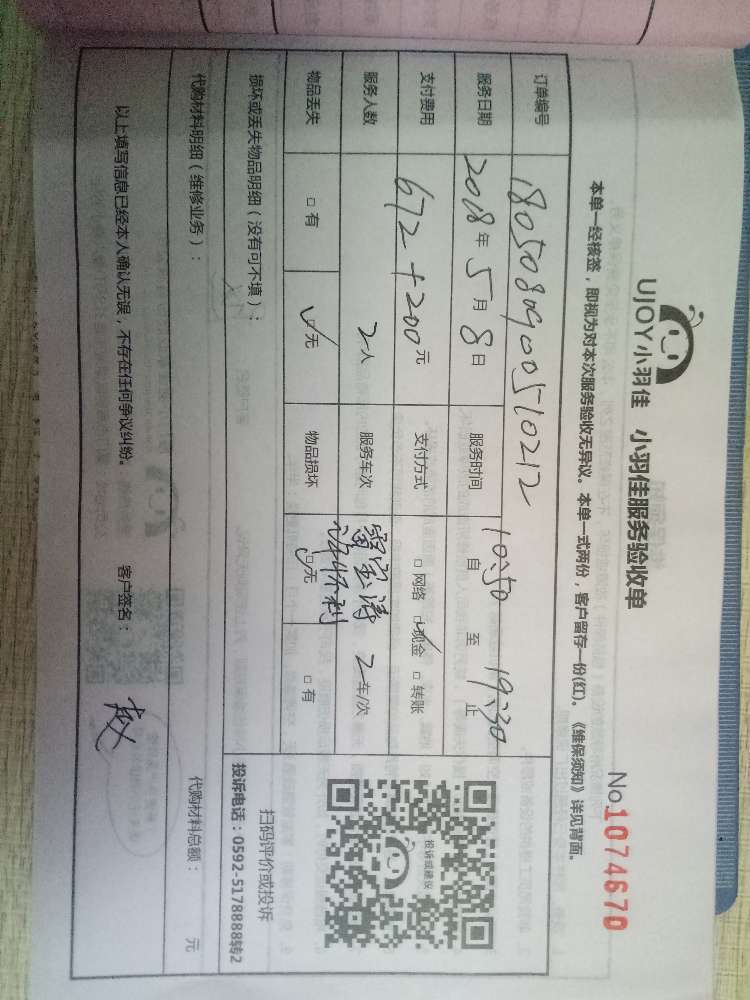 UJOY小羽佳 小羽佳服务验收单
No.1074670
本单一经核签，即视为对本次服务验收无异议。本单一式两份，客户留存一份(红)。《维保须知》详见背面。
订单编号 180508090051 0212
服务日期 2018年5月8日 服务时间 自10:50至19:30止
支付费用 672+200元 支付方式 □网络 ☑现金 □转账
服务人数 2人 服务车次 2车/次
物品丢失 □有 ☑无 物品损坏 ☑无 □有
投诉或建议
扫码评价或投诉
投诉电话：0592-5178888转2
损坏或丢失物品明细（没有可不填）：
代购材料明细（维修业务）： 代购材料总额： 元
以上填写信息已经本人确认无误，不存在任何争议纠纷。 客户签名：